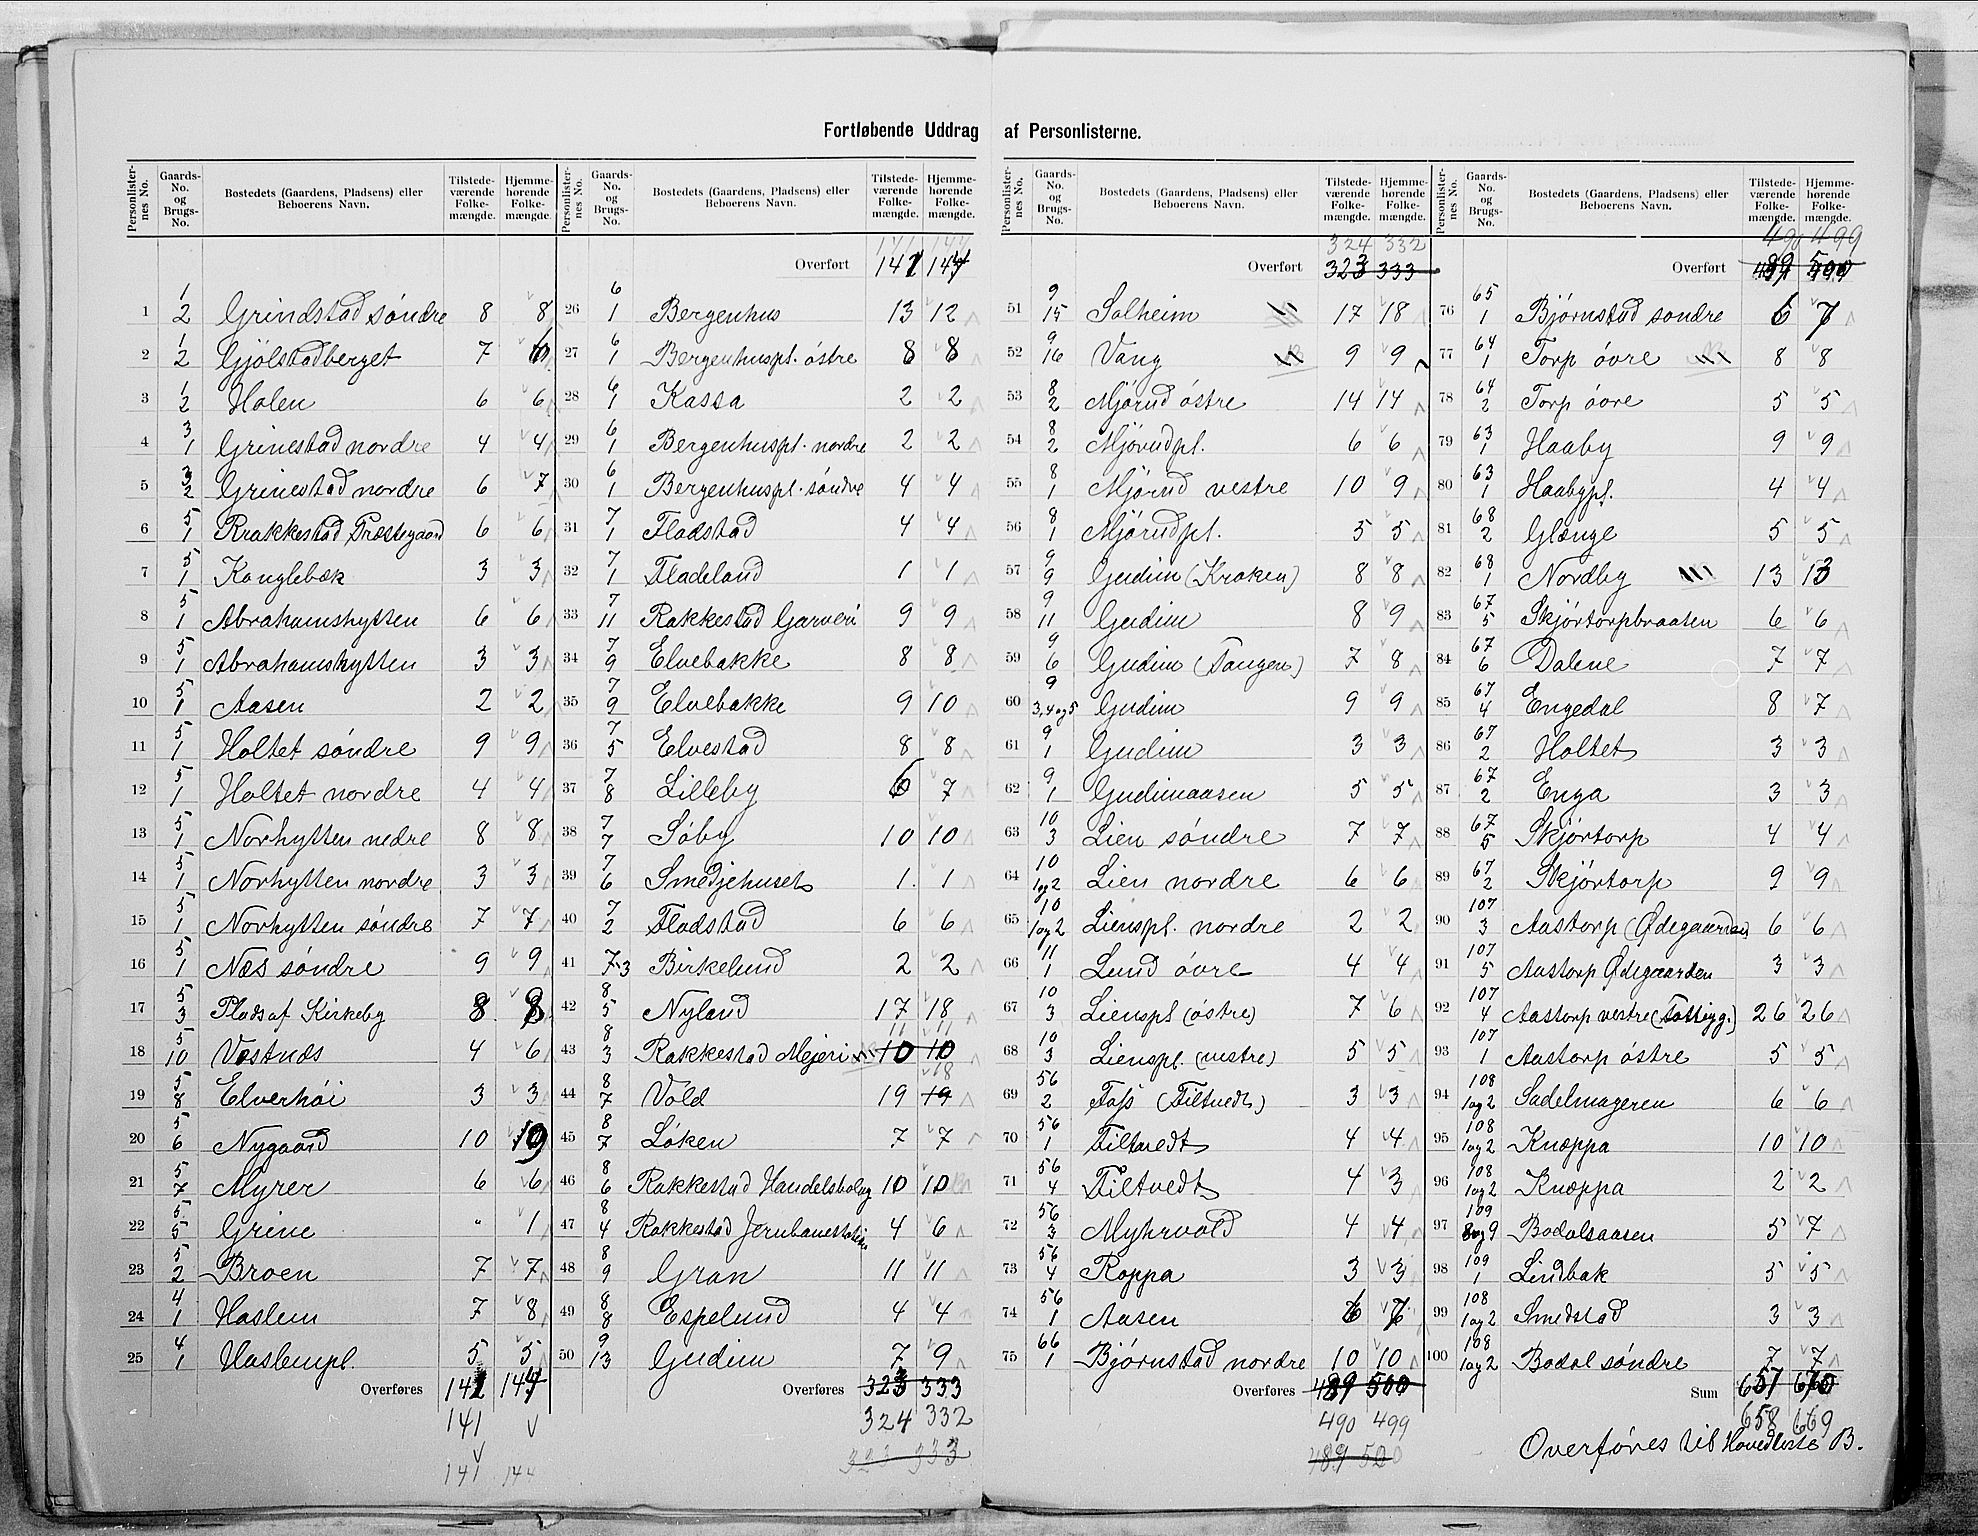 Fortløbende Uddrag af Personlisterne.
Personlisternes No. Gaards-No. og Brugs-No. Bostedets (Gaardens, Pladsens) eller Beboerens Navn. Tilstedeværende Folkemængde. Hjemmehørende Folkemængde.
1 1/2 Grindstad søndre 8 8
2 1/2 Gjølstadberget 7 6
3 1/2 Holen 6 6
4 3/1 Grinestad nordre 4 4
5 3/2 Grinestad nordre 6 7
6 5/1 Rrakkestad Præstegaard 6 6
7 5/1 Kanglebæk 3 3
8 5/1 Abrahamshytten 6 6
9 5/1 Abrahamshytten 3 3
10 5/1 Aasen 2 2
11 5/1 Holtet søndre 9 9
12 5/1 Holtet nordre 4 4
13 5/1 Norhytten nedre 8 8
14 5/1 Norhytten nordre 3 3
15 5/1 Norhytten søndre 7 7
16 5/1 Næs søndre 9 9
17 5/3 Plads af Kirkeby 8 8
18 5/10 Væstnæs 4 6
19 5/8 Elverhøi 3 3
20 5/6 Nygaard 10 9
21 5/7 Myrer 6 6
22 5/5 Grine " 1
23 5/2 Broen 7 7
24 4/1 Haslem 7 8
25 4/1 Haslempl. 5 5
Overføres 141 144
141
141 144
Personlisternes No. Gaards-No. og Brugs-No. Bostedets (Gaardens, Pladsens) eller Beboerens Navn. Tilstedeværende Folkemængde. Hjemmehørende Folkemængde.
141 144
Overført 141 144
26 6/1 Bergenhus 13 12
27 6/1 Bergenhuspl. østre 8 8
28 6/1 Kassa 2 2
29 6/1 Bergenhuspl. nordre 2 2
30 6/1 Bergenhuspl. søndre 4 4
31 7/1 Fladstad 4 4
32 7/1 Fladeland 1 1
33 7/11 Rakkestad Garveri 9 9
34 7/9 Elvebakke 8 8
35 7/9 Elvebakke 9 10
36 7/5 Elvestad 8 8
37 7/8 Lilleby 6 7
38 7/7 Søby 10 10
39 7/6 Smedjehuset 1 1
40 7/2 Fladstad 6 6
41 7-3 Birkelund 2 2
42 8/5 Nyland 17 18
11 11
43 8/3 Rakkestad Mejeri 10 10
18
44 8/7 Vold 19 19
45 8/7 Løken 7 7
46 8/6 Rakkestad Handelsbolag 10 10
47 8/4 Rakkestad Jernbanestation 4 6
48 8/9 Gran 11 11
49 8/8 Espelund 4 4
50 9/13 Gudim 7 9
Overføres 323 333
324 332
323 333
Personlisternes No. Gaards-No. og Brugs-No. Bostedets (Gaardens, Pladsens) eller Beboerens Navn. Tilstedeværende Folkemængde. Hjemmehørende Folkemængde.
324 332
Overført 323 333
51 9/15 Solheim 17 18
52 9/16 Vang 9 9
53 8/2 Mjørud østre 14 14
54 8/2 Mjørudpl. 6 6
55 8/1 Mjørud vestre 10 9
56 8/1 Mjørudpl. 5 5
57 9/9 Gudim (Kroken) 8 8
58 9/11 Gudim 8 9
59 9/6 Gudim (Tangen) 7 8
60 9/3,4 og 5 Gudim 9 9
61 9/1 Gudim 3 3
62 9/1 Gudimaasen 5 5
63 10/3 Lien søndre 7 7
64 10/1og2 Lien nordre 6 6
65 10/1og2 Lienspl. nordre 2 2
66 11/1 Lund øvre 4 4
67 10/3 Lienspl (østre) 7 6
68 10/3 Lienspl. (vestre) 5 5
69 56/2 Foss (Tiltvedt) 3 3
70 56/1 Tiltvedt 4 4
71 56/4 Tiltvedt 4 3
72 56/3 Myhrvold 4 4
73 56/4 Roppa 3 3
74 56/1 Aasen 6 7
75 66/1 Bjørnstad nordre 10 10
Overføres 489 500
490 499
489 500
Personlisternes No. Gaards-No. og Brugs-No. Bostedets (Gaardens, Pladsens) eller Beboerens Navn. Tilstedeværende Folkemængde. Hjemmehørende Folkemængde.
490 499
Overført 489 500
76 65/1 Bjørnstad søndre 6 7
77 64/1 Torp øvre 8 8
78 64/2 Torp øvre 5 5
79 63/1 Haaby 9 9
80 63/1 Haabypl. 4 4
81 68/2 Glænge 5 5
82 68/1 Nordby 13 13
83 67/5 Skjørtorpbraaten 6 6
84 67/6 Dalene 7 7
85 67/4 Engedal 8 7
86 67/2 Holtet 3 3
87 67/2 Enga 3 3
88 67/5 Skjørtorp 4 4
89 67/2 Skjørtorp 9 9
90 107/3 Aastorp (Ødegaarden) 6 6
91 107/5 Aastorp Ødegaarden 3 3
92 107/4 Aastorp vestre (Fattigg.) 26 26
93 107/1 Aastorp østre 5 5
94 108/1og2 Sadelmageren 6 6
95 108/1og2 Knoppa 10 10
96 108/1og2 Knoppa 2 2
97 109/8og9 Bodalsaasen 5 7
98 109/1 Lindbak 5 5
99 108/1og2 Smedstad 3 3
100 108/1og2 Bodal søndre 7 7
Sum 657 670
658 669
Overføres til Hovedliste B.